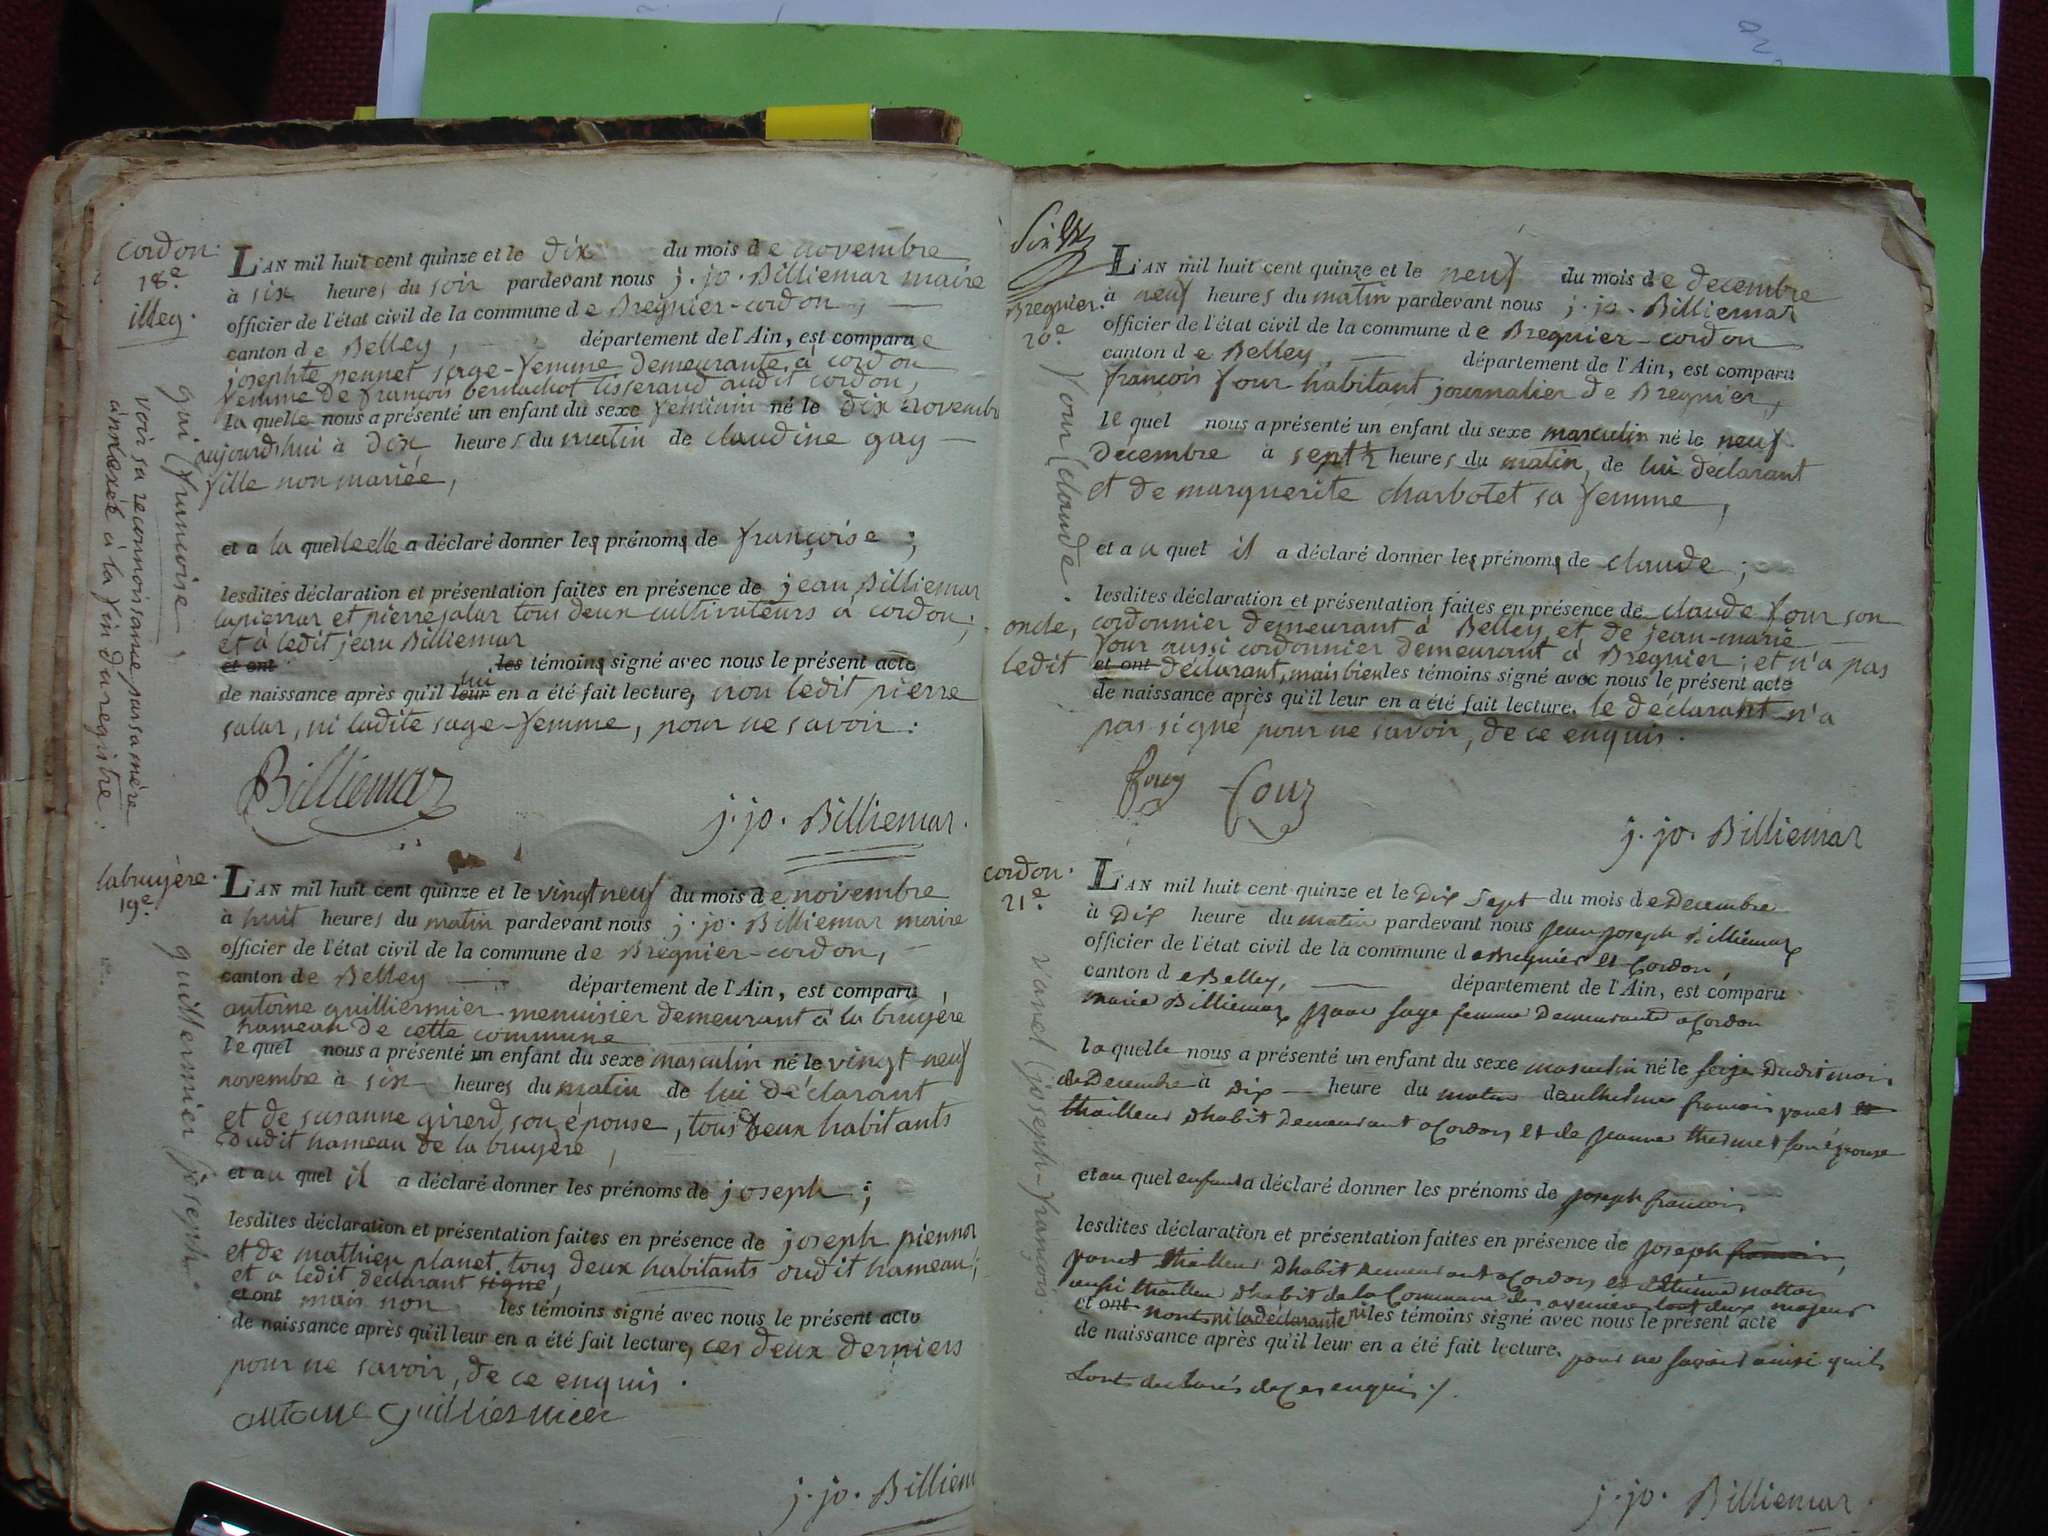 cordon.
18.e
illeg.
gui françoise,
voir sa reconnoissance par sa mère
annexée à la fin du registre.
L'AN mil huit cent quinze et le dix du mois de novembre
à six heures du soir pardevant nous j. jo. Billiemar maire
officier de l'état civil de la commune de Bregnier-cordon,
canton de Belley, département de l'Ain, est comparue
josephte pennet sage-femme demeurante à cordon
femme de françois bernachot tisserand audit cordon,
la quelle nous a présenté un enfant du sexe feminin né le dix novembre
aujourd'hui à dix heures du matin de claudine guy
fille non mariée,
et a la quelle elle a déclaré donner les prénoms de françoise;
lesdites déclaration et présentation faites en présence de jean Billiemar
lapierrar et pierre salar tous deux cultivateurs à cordon;
et à ledit jean Billiemar
et ont les témoins signé avec nous le présent acte
de naissance après qu'il leur lui en a été fait lecture, non ledit pierre
salar, ni ladite sage-femme, pour ne savoir.
Billiemaz
j. jo. Billiemar.
labruyère.
19.e
guillermier joseph.
L'AN mil huit cent quinze et le vingt neuf du mois de novembre
à huit heures du matin pardevant nous j. jo. Billiemar maire
officier de l'état civil de la commune de Bregnier-cordon,
canton de Belley département de l'Ain, est comparu
antoine guilliermier menuisier demeurant à la bruyère
hameau de cette commune
le quel nous a présenté un enfant du sexe masculin né le vingt neuf
novembre à six heures du matin de lui déclarant
et de susanne girerd son épouse, tous deux habitants
dudit hameau de la bruyère,
et au quel il a déclaré donner les prénoms de joseph;
lesdites déclaration et présentation faites en présence de joseph piennor
et de mathieu planet tous deux habitants oudit hameau;
et a ledit déclarant signé,
et ont mais non les témoins signé avec nous le présent acte
de naissance après qu'il leur en a été fait lecture, ces deux derniers
pour ne savoir, de ce enquis.
antoine guilliermier
j. jo. Billiem
Bregnier.
20.e
four claude.
L'AN mil huit cent quinze et le neuf du mois de decembre
à neuf heures du matin pardevant nous j. jo. Billiemar
officier de l'état civil de la commune de Bregnier-cordon
canton de Belley, département de l'Ain, est comparu
françois four habitant journalier de Bregnier,
le quel nous a présenté un enfant du sexe masculin né le neuf
décembre à sept ½ heures du matin, de lui déclarant
et de marguerite charbotet sa femme,
et au quel il a déclaré donner les prénoms de claude;
lesdites déclaration et présentation faites en présence de claude four son
oncle, cordonnier demeurant à Belley, et de jean-marie
four aussi cordonnier demeurant à Bregnier; et n'a pas
ledit et ont déclarant, mais bien les témoins signé avec nous le présent acte
de naissance après qu'il leur en a été fait lecture, le déclarant n'a
pas signé pour ne savoir, de ce enquis.
fouz fouz
j. jo. Billiemar
cordon.
21.e
vanel joseph-françois.
L'AN mil huit cent quinze et le Dix Sept du mois de Decembre
à Dix heure du matin pardevant nous jean joseph Billiemaz
officier de l'état civil de la commune de Bregnier et Cordon,
canton de Belley, département de l'Ain, est comparu
marie Billiemaz sage femme Demeurante a Cordon
laquelle nous a présenté un enfant du sexe masculin né le seize dudit mois
de Decembre à dix heure du matin de anthelme francois vanel
thailleur dhabit Demeurant a Cordon et de jeanne son épouse
et au quel enfant a déclaré donner les prénoms de joseph francois
lesdites déclaration et présentation faites en présence de joseph francois,
vanel thailleur dhabit demeurant a Cordon et etienne
aussi thailleur dhabit de la Commune des avenieres tout deux majeur
et ont nont ni la déclarante ni les témoins signé avec nous le présent acte
de naissance après qu'il leur en a été fait lecture, pour ne savoir ainsi quils
sont declarés de ce enquis.
j. jo. Billiemar.